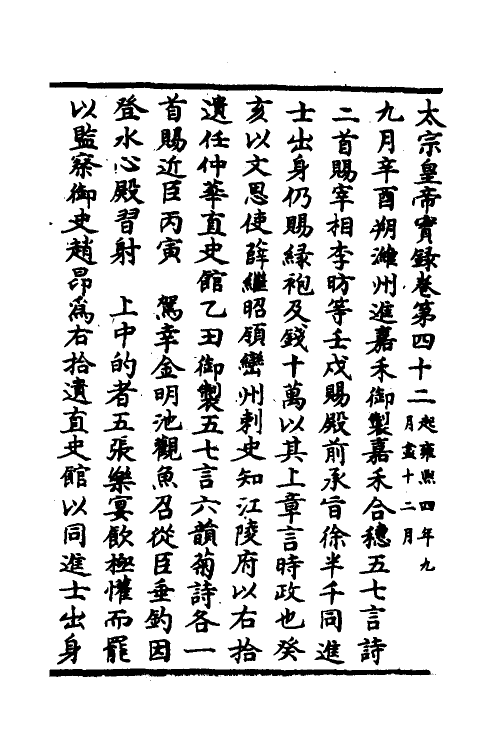 太宗皇帝實録卷第四十二起雍熙四年九月盡十二月
九月辛酉朔濰州進嘉禾御製嘉禾合穗五七言詩
二首賜宰相李昉等壬戌賜殿前承旨徐半千同進
士出身仍賜緑袍及錢十萬以其上章言時政也癸
亥以文思使薛繼昭領巒州刺史知江陵府以右拾
遺任仲華直史館乙丑御製五七言六韻菊詩各一
首賜近臣丙寅　駕幸金明池觀魚召從臣垂釣因
登水心殿習射　上中的者五張樂宴飲極懽而罷
以監察御史趙昂爲右拾遺直史館以同進士出身